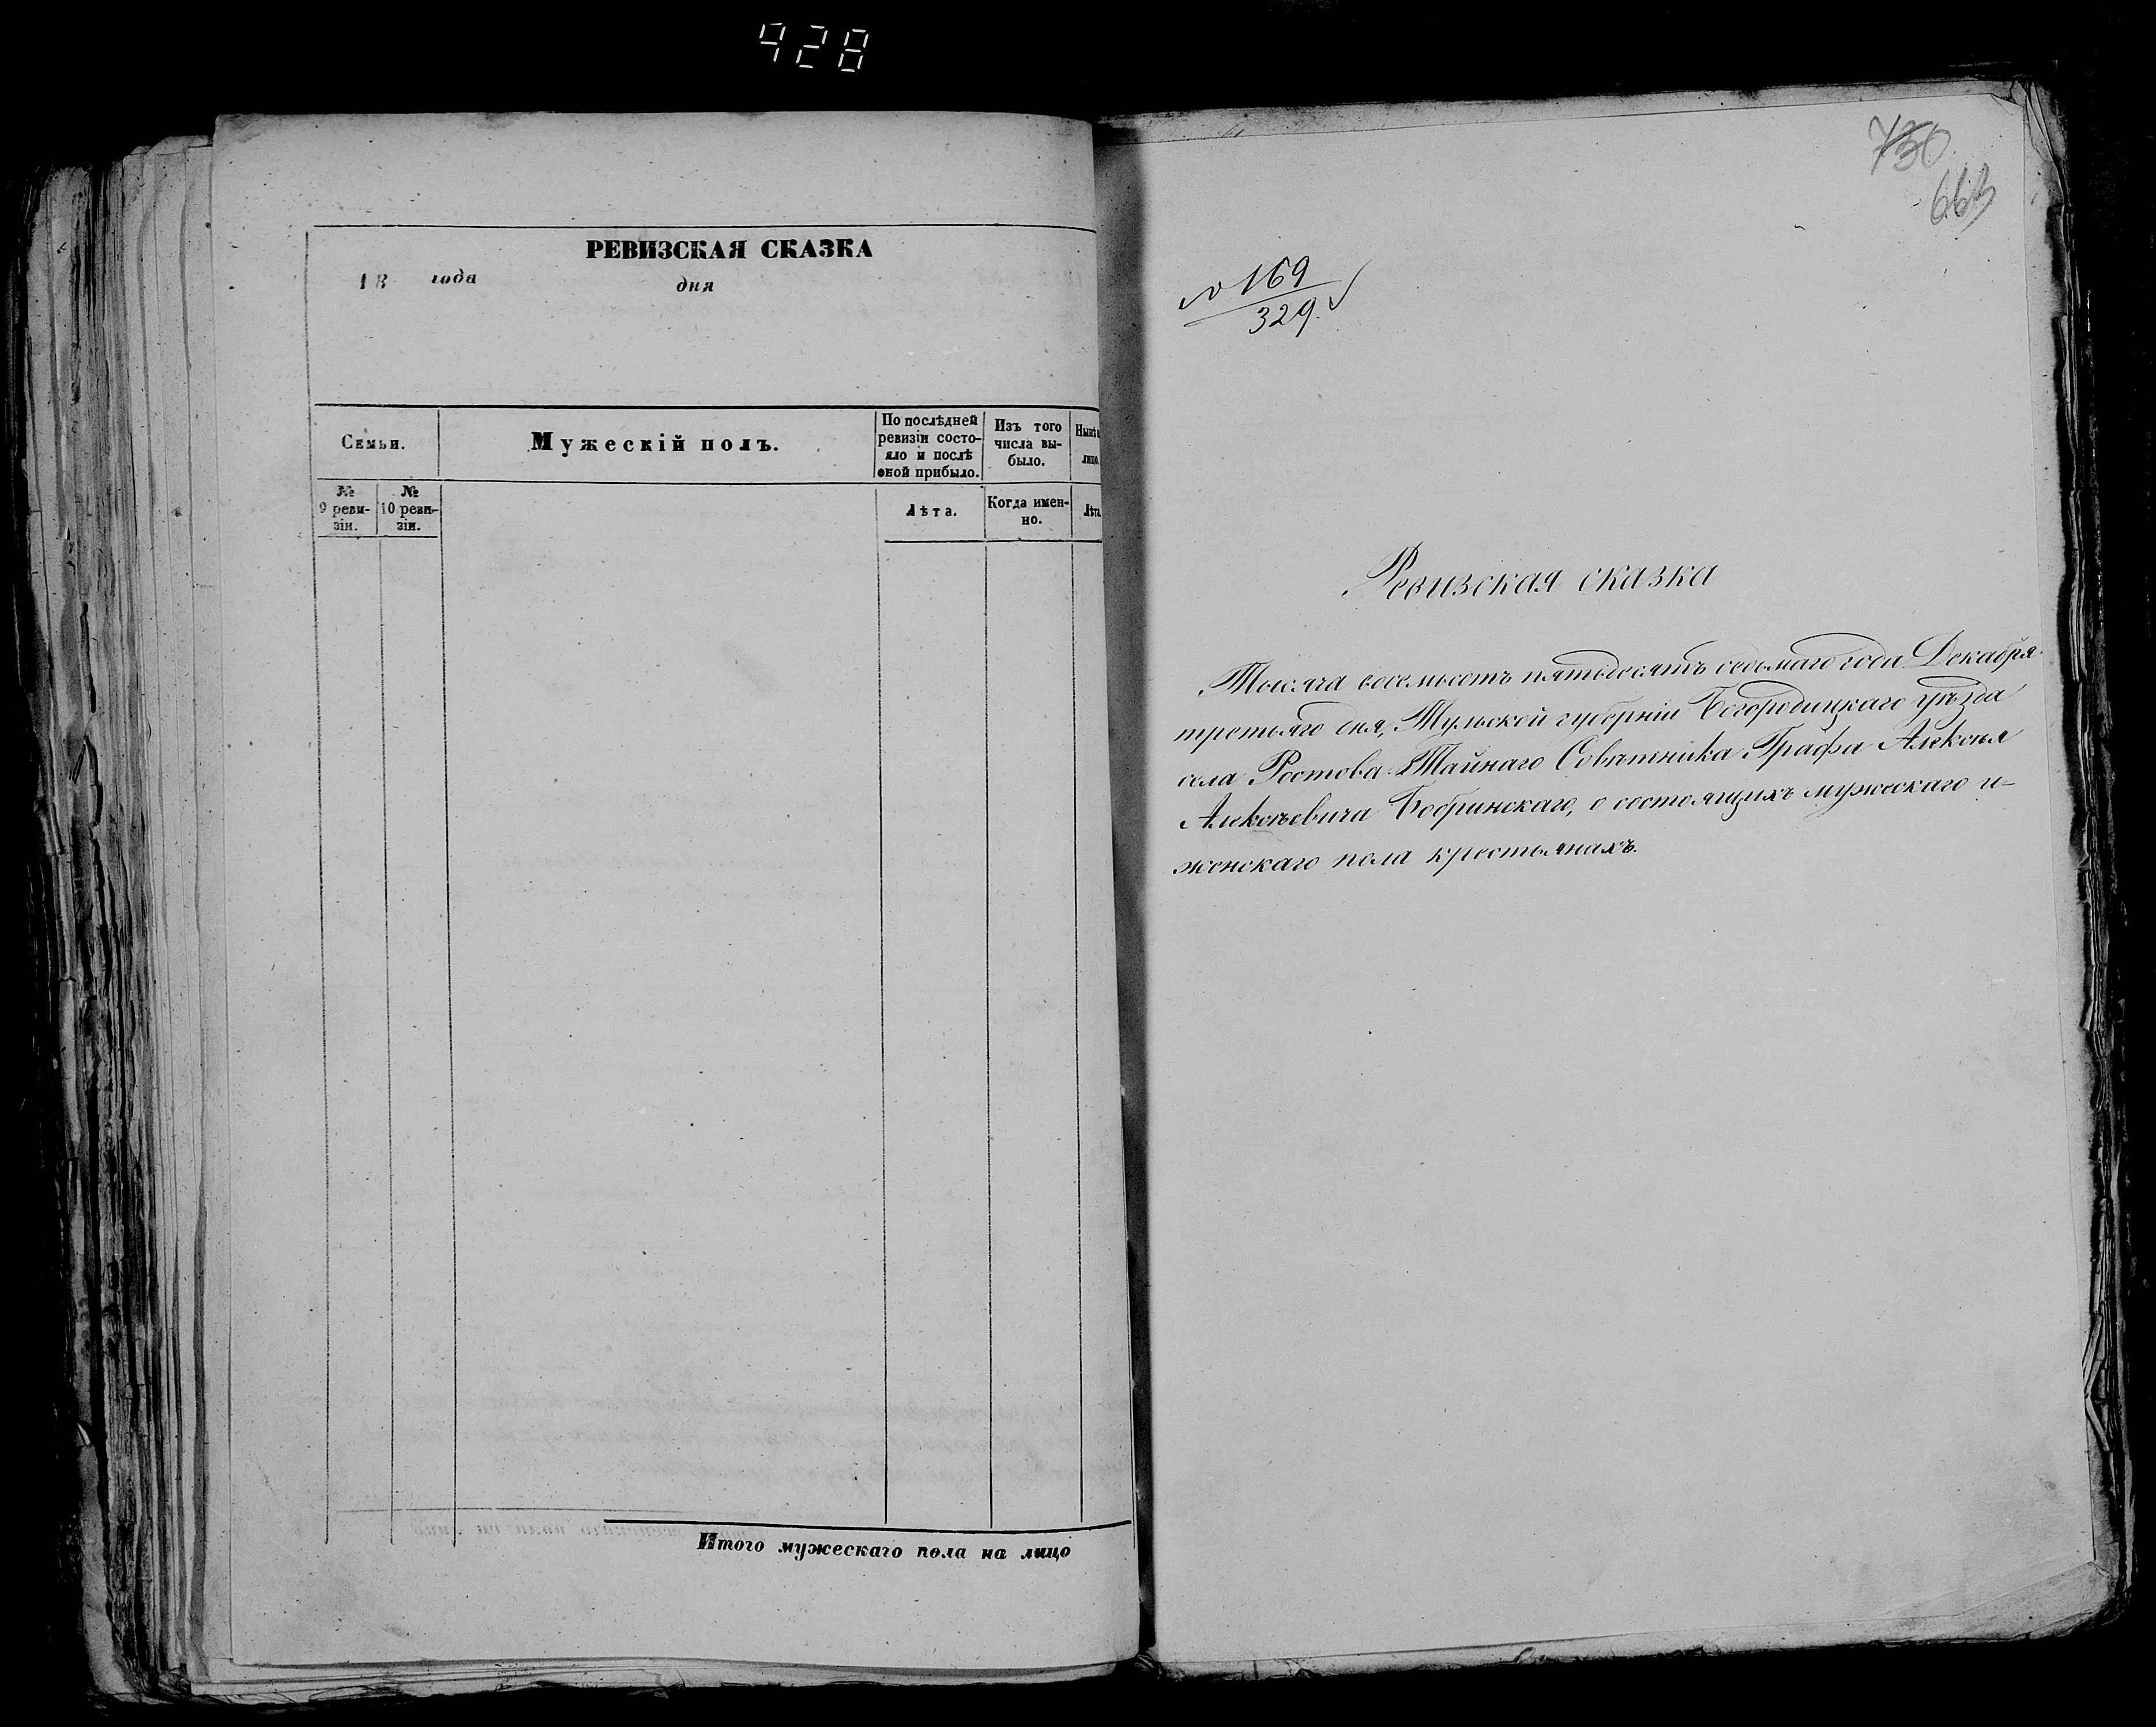 428
РЕВИЗСКАЯ СКАЗКА
18 года дня
Семьи.
Мужескій полъ.
По послѣдней
ревизіи состо-
яло и послѣ
оной прибыло.
Изъ того
числа вы-
было.
Нынѣ
лицо.
№
9 реви-
зіи.
№
10 реви-
зіи.
Лѣта.
Когда имен-
но.
Лѣта
Итого мужескаго пола на лицо
730
663
№ 169
329.
Ревизская сказка
Тысяча восемьсотъ пятьдесятъ седьмаго года Декабря
третьяго дня, Тульской губерніи Богородицкаго уѣзда
села Ростова Тайнаго Совѣтника Графа Алексѣя
Алексѣевича Бобринскаго, о состоящихъ мужескаго и
женскаго пола крестьянахъ.